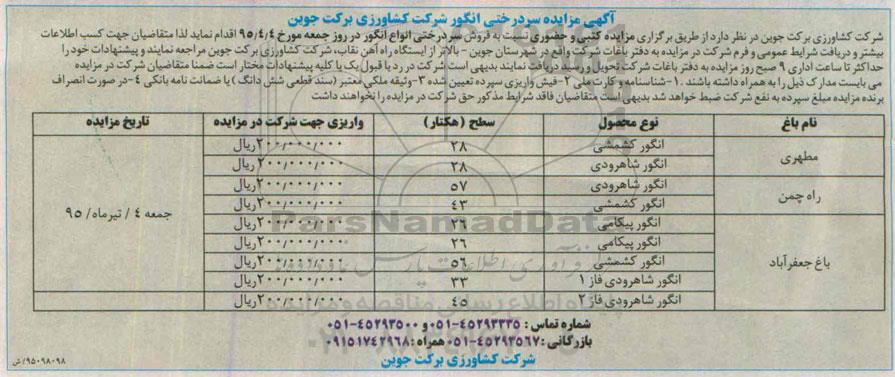 آگهی مزایده سردرختی انگور شرکت کشاورزی برکت جوین
شرکت کشاورزی برکت جوین در نظر دارد از طریق برگزاری مزایده کتبی و حضوری نسبت به فروش سردرختی انواع انگور در روز جمعه مورخ ۹۵/۴/۴ اقدام نماید لذا متقاضیان جهت کسب اطلاعات
بیشتر و دریافت شرایط عمومی و فرم شرکت در مزایده به دفتر باغات شرکت واقع در شهرستان جوین - بالاتر از ایستگاه راه آهن نقاب، شرکت کشاورزی برکت جوین مراجعه نمایند و پیشنهادات خود را
حداکثر تا ساعت اداری ۹ صبح روز مزایده به دفتر باغات شرکت تحویل و رسید دریافت نمایند بدیهی است شرکت در رد یا قبول یک یا کلیه پیشنهادات مختار است ضمنا متقاضیان شرکت در مزایده
می بایست مدارک ذیل را به همراه داشته باشند . ۱-شناسنامه و کارت ملی ۲-فیش واریزی سپرده تعیین شده ۳-وثیقه ملکی معتبر (سند قطعی شش دانگ ) یا ضمانت نامه بانکی ۴-در صورت انصراف
برنده مزایده مبلغ سپرده به نفع شرکت ضبط خواهد شد بدیهی است متقاضیان فاقد شرایط مذکور حق شرکت در مزایده را نخواهند داشت
نام باغ نوع محصول سطح (هکتار) واریزی جهت شرکت در مزایده تاریخ مزایده
مطهری انگور کشمشی ۲۸ ۲۰۰/۰۰۰/۰۰۰ریال
انگور شاهرودی ۲۸ ۲۰۰/۰۰۰/۰۰۰ریال
راه چمن انگور شاهرودی ۵۷ ۲۰۰/۰۰۰/۰۰۰ریال
انگور کشمشی ۴۳ ۲۰۰/۰۰۰/۰۰۰ریال جمعه ۴ / تیرماه/ ۹۵
باغ جعفرآباد انگور پیکامی ۲۶ ۲۰۰/۰۰۰/۰۰۰ریال
انگور پیکامی ۲۶ ۲۰۰/۰۰۰/۰۰۰ریال
انگور کشمشی ۵۶ ۲۰۰/۰۰۰/۰۰۰ریال
انگور شاهرودی فاز ۱ ۳۳ ۲۰۰/۰۰۰/۰۰۰ریال
انگور شاهرودی فاز ۲ ۴۵ ۲۰۰/۰۰۰/۰۰۰ریال
ParsNamadData
شماره تماس : ۴۵۲۹۳۳۳۵-۰۵۱ و ۴۵۲۹۳۵۰۰-۰۵۱
بازرگانی :۴۵۲۹۳۵۶۷-۰۵۱ همراه : ۰۹۱۵۱۷۴۲۹۶۸
شرکت کشاورزی برکت جوین
۹۵۰۹۸۰۹۸/ش